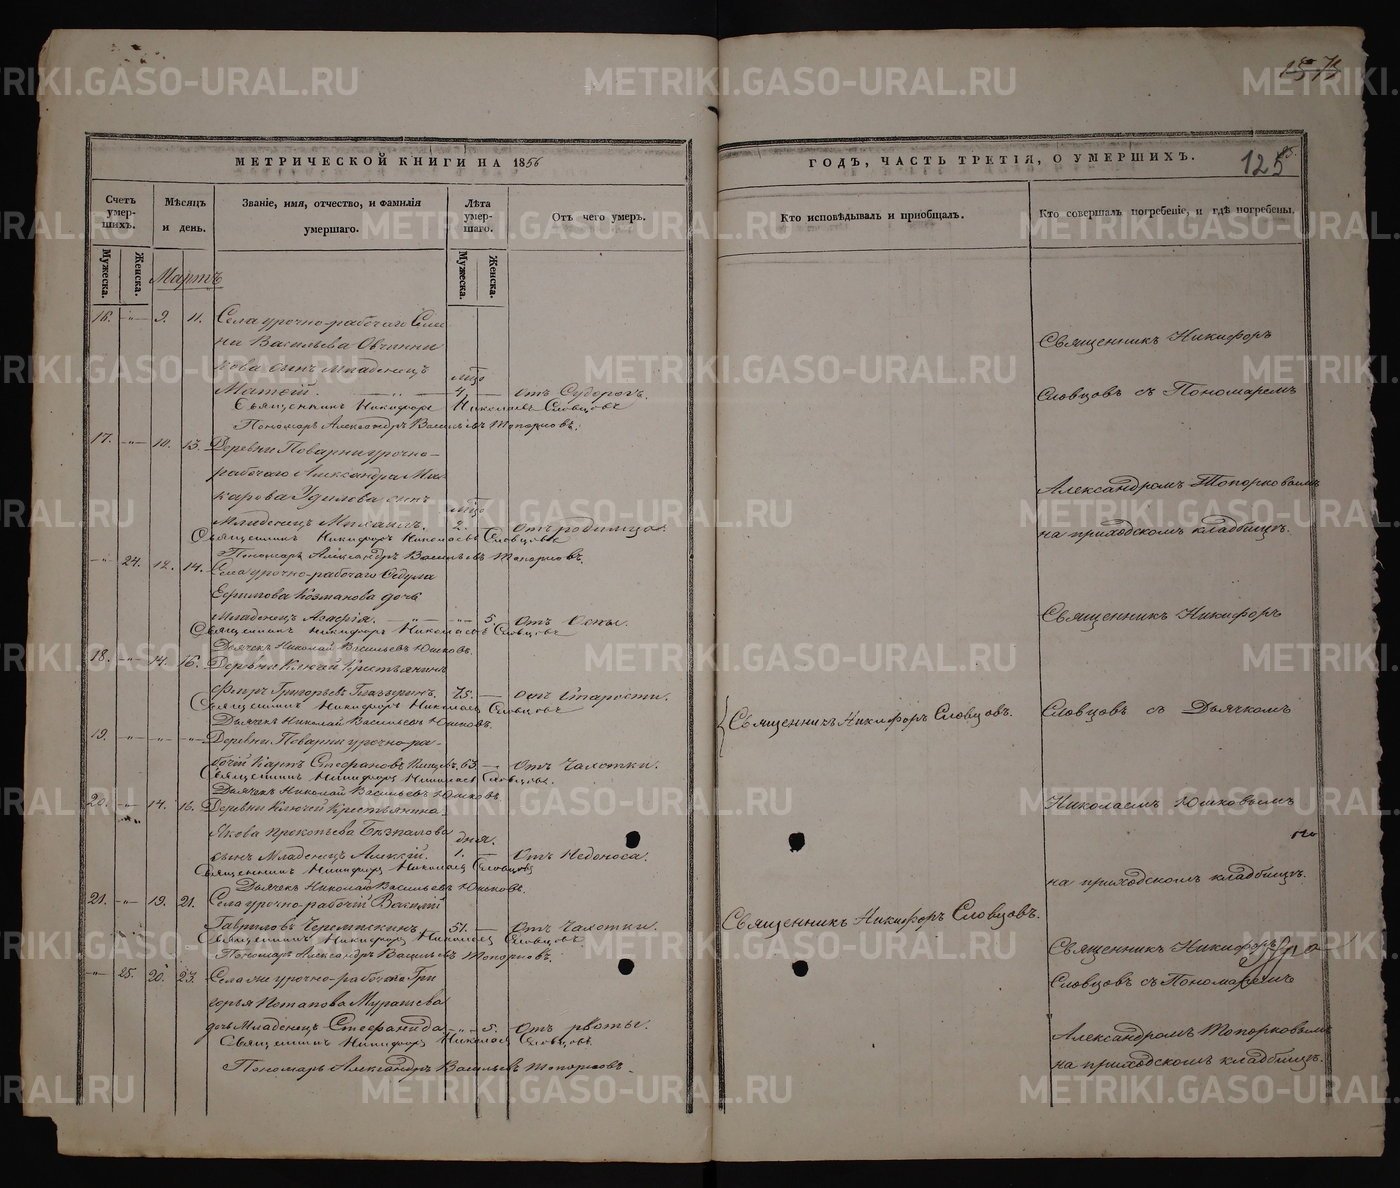 МЕТРИЧЕСКОЙ КНИГИ НА 1856
Счетъ умер-шихъ.
Мужеска.
Женска.
Мѣсяцъ и день.
Званіе, имя, отчество, и фамилія умершаго.
Лѣта умер-шаго.
Мужеска.
Женска.
Отъ чего умеръ.
Мартъ
16. -"- 9. 11. Села урочно-рабочаго Семе
на Васильева Овчинни
кова сынъ младенецъ
Матѳій. мцо 4. — Отъ Судорогъ.
Священникъ Никифоръ Николаевъ Словцовъ
Пономарь Александръ Васильевъ Топорковъ.
17. -"- 10. 13. Деревни Поварни урочно-
рабочаго Александра Ма
карова сынъ
младенецъ Михаилъ. мцо 2. — Отъ родимца.
Священникъ Никифоръ Николаевъ Словцовъ
Пономарь Александръ Васильевъ Топорковъ.
-"- 24. 12. 14. Села урочно-рабочаго Ѳедула
Ефимова Козманова дочь
младенецъ Агафія. -"- 5. Отъ Оспы.
Священникъ Никифоръ Николаевъ Словцовъ
Дьячекъ Николай Васильевъ Юшковъ.
18. -"- 14. 16. Деревни Ключей крестьянинъ
Григорьевъ Глазыринъ. 75. — Отъ Старости.
Священникъ Никифоръ Николаевъ Словцовъ
Дьячекъ Николай Васильевъ Юшковъ.
19. -"- -"- -"- Деревни Поварни урочно-ра-
бочій Карпъ Стефановъ 63. — Отъ Чахотки.
Священникъ Никифоръ Николаевъ Словцовъ.
Дьячекъ Николай Васильевъ Юшковъ.
20. -"- 14. 16. Деревни Ключей Крестьянина
Якова Прокопьева
сынъ младенецъ Алексій. дня. 1. — Отъ Недоноса.
Священникъ Никифоръ Николаевъ Словцовъ
Дьячекъ Николай Васильевъ Юшковъ.
21. -"- 19. 21. Села урочно-рабочій Василій
Гавриловъ Черемискинъ. 51. — Отъ Чахотки.
Священникъ Никифоръ Николаевъ Словцовъ.
Пономарь Александръ Васильевъ Топорковъ.
-"- 25. 20. 23. Села урочно-рабочаго Гри
горья Потапова Мурашева
дочь младенецъ Стефанида -"- 5. Отъ рвоты.
Священникъ Никифоръ Николаевъ Словцовъ.
Пономарь Александръ Васильевъ Топорковъ.
ГОДЪ, ЧАСТЬ ТРЕТІЯ, О УМЕРШИХЪ.
125
Кто исповѣдывалъ и пріобщалъ.
Кто совершалъ погребеніе, и гдѣ погребены.
Священникъ Никифоръ
Словцовъ съ Пономаремъ
Александромъ Топорковымъ
на приходскомъ кладбищѣ.
Священникъ Никифоръ
Священникъ Никифоръ Словцовъ.
Словцовъ съ Дьячкомъ
Николаемъ Юшковымъ
на приходскомъ кладбищѣ.
Священникъ Никифоръ Словцовъ.
Священникъ Никифоръ
Словцовъ съ Пономаремъ
Александромъ Топорковымъ
на приходскомъ кладбищѣ.
METRIKI.GASO-URAL.RU